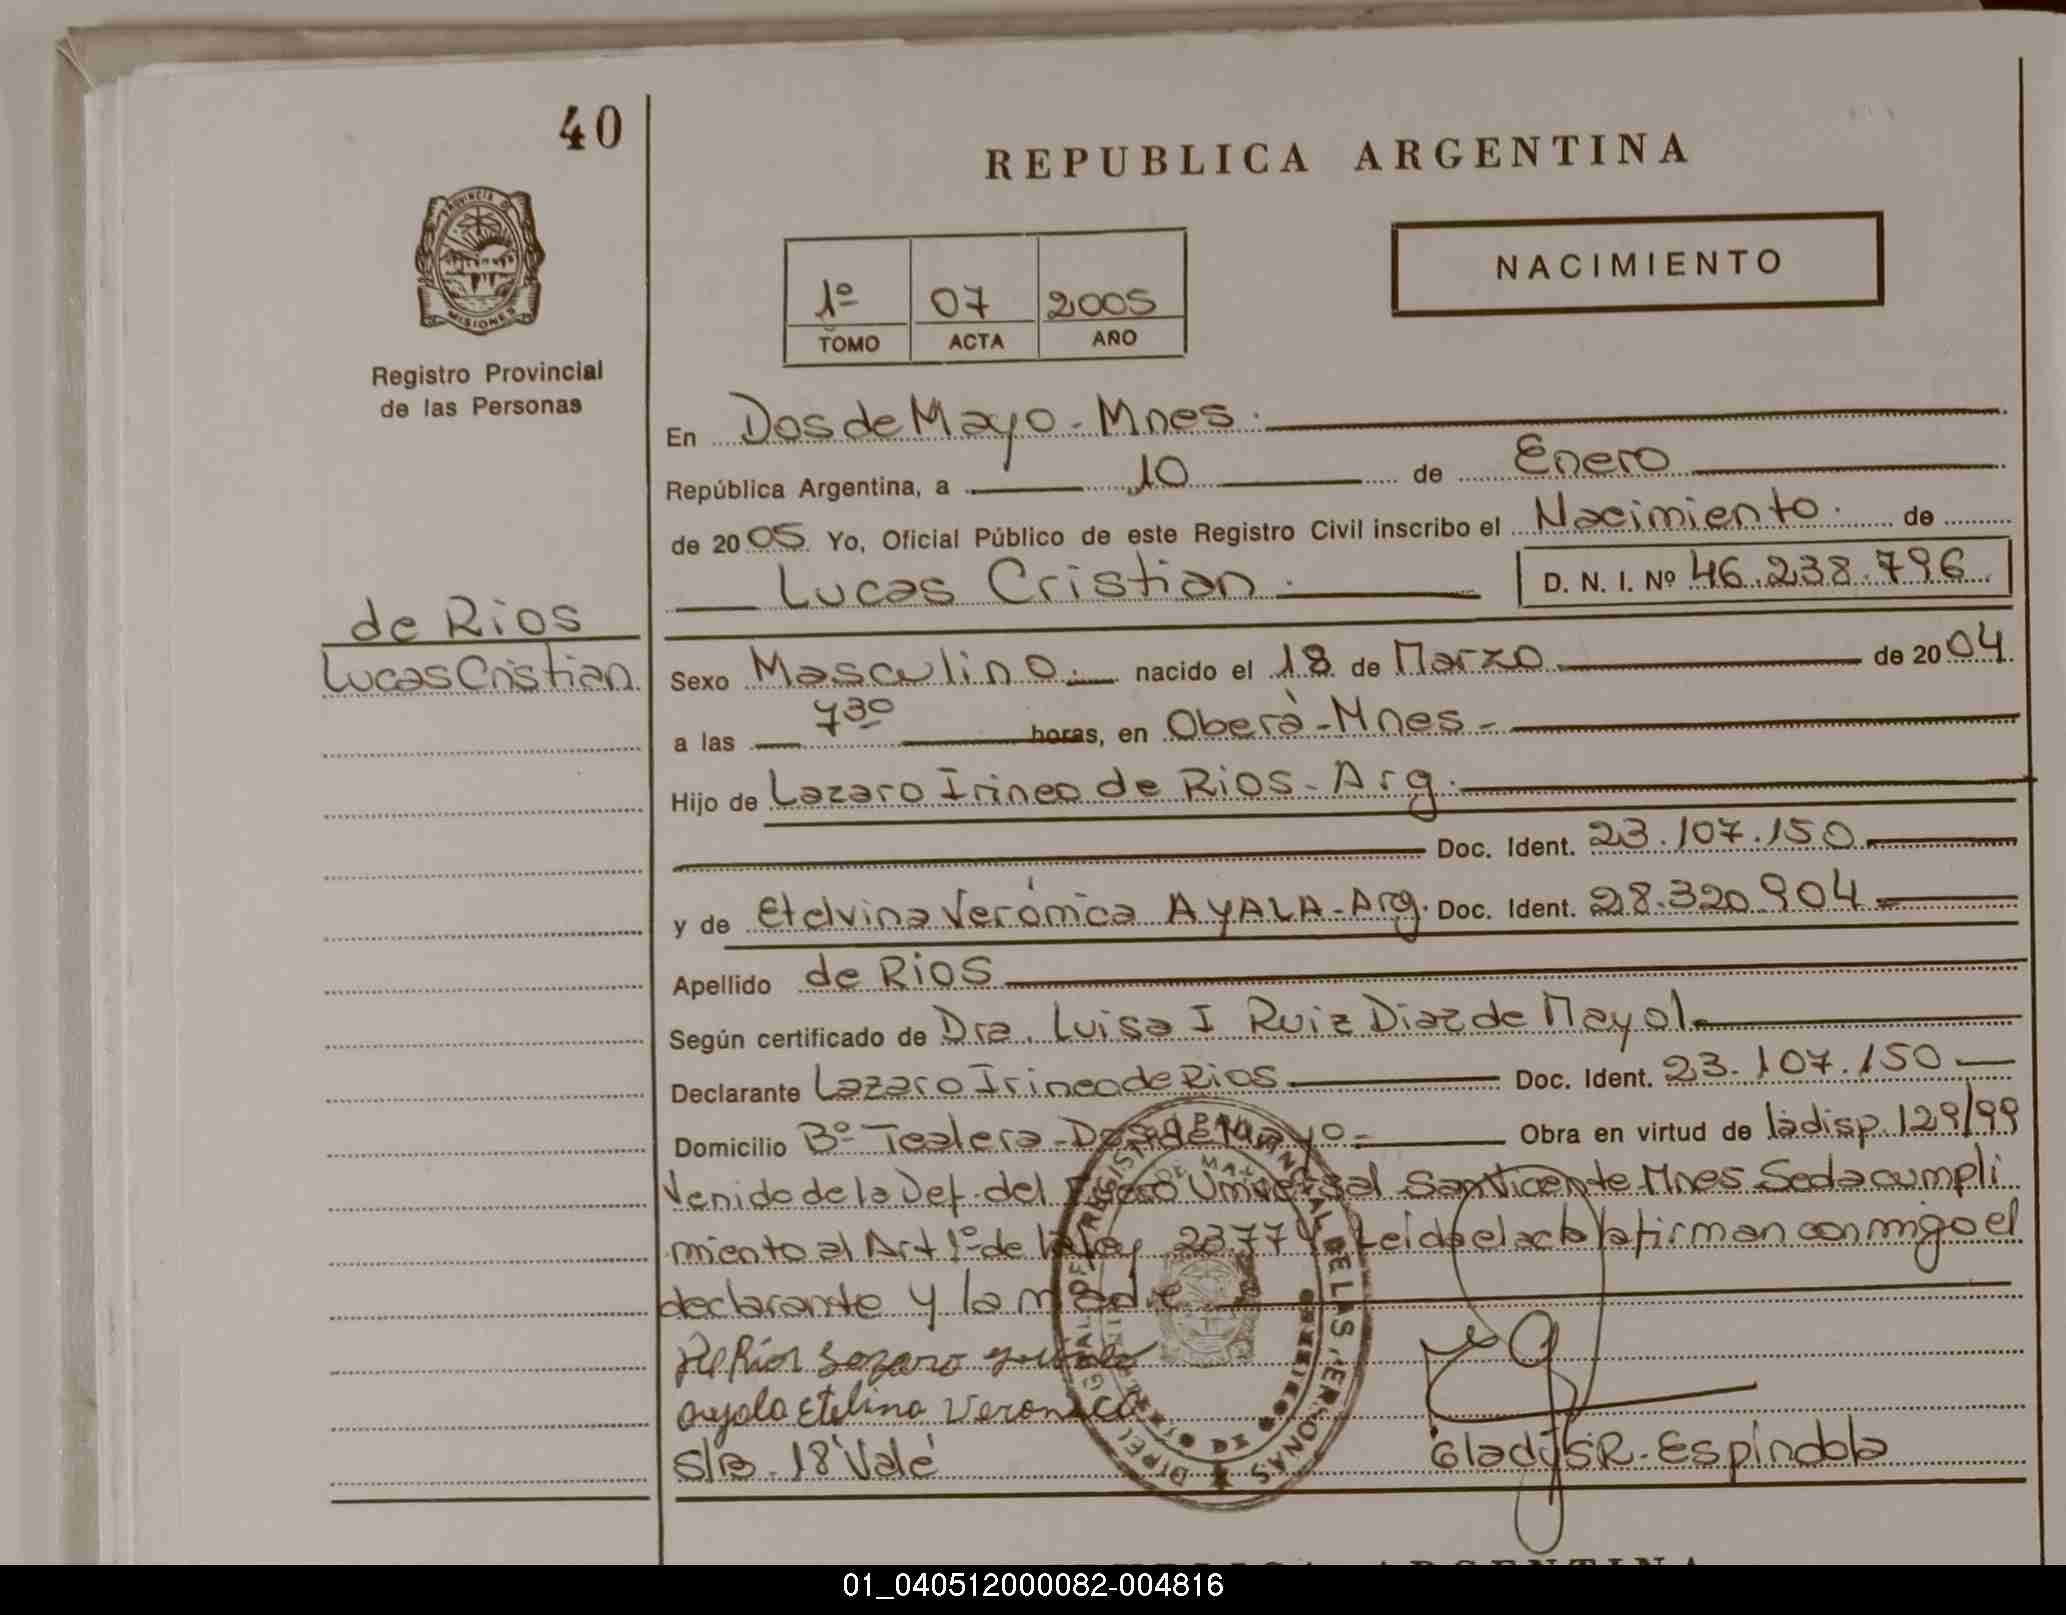 40
REPUBLICA ARGENTINA
PROVINCIA DE
MISIONES
Registro Provincial
de las Personas
NACIMIENTO
1º 07 2005
TOMO ACTA AÑO
En Dos de Mayo - Mnes.
República Argentina, a 10 de Enero
de 2005 Yo, Oficial Público de este Registro Civil inscribo el Nacimiento. de
Lucas Cristian. D. N. I. Nº 46.238.796
de Rios
Lucas Cristian
Sexo Masculino. nacido el 18 de Marzo de 2004
a las 7 30 horas, en Oberá - Mnes -
Hijo de Lazaro Irineo de Rios - Arg.
Doc. Ident. 23.107.150
y de Etelvina Verónica AYALA - Arg. Doc. Ident. 28.320.904
Apellido de Rios
Según certificado de Dra. Luisa I Ruiz Diaz de Mayol
Declarante Lazaro Irineo de Rios Doc. Ident. 23.107.150
Domicilio Bº Tealera - Dos de Mayo - Obra en virtud de la disp. 129/99
Venido de la Def. del Fuero Universal San Vicente Mnes Se da cumpli
miento al Art 1º de la ley 23774 Leida el acta la firman conmigo el
declarante y la madre
De Rios Lazaro
Ayala Etelina Veronica
S/B. 18 Vale
Gladys R. Espíndola
01_040512000082-004816